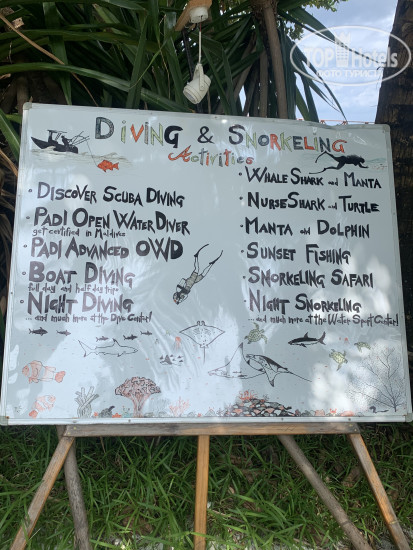 TopHotels
ФОТО ТУРИСТА
DIVING & SNORKELING
Activities
· DISCOVER SCUBA DIVING
· PADI OPEN WATER DIVER
get certified in Maldives
· PADI ADVANCED OWD
· BOAT DIVING
full day and half day trips
· NIGHT DIVING
... and much more at the Dive Center!
· WHALE SHARK and MANTA
· NURSE SHARK and TURTLE
· MANTA and DOLPHIN
· SUNSET FISHING
· SNORKELING SAFARI
· NIGHT SNORKELING
... and much more at the Water Sport Center!